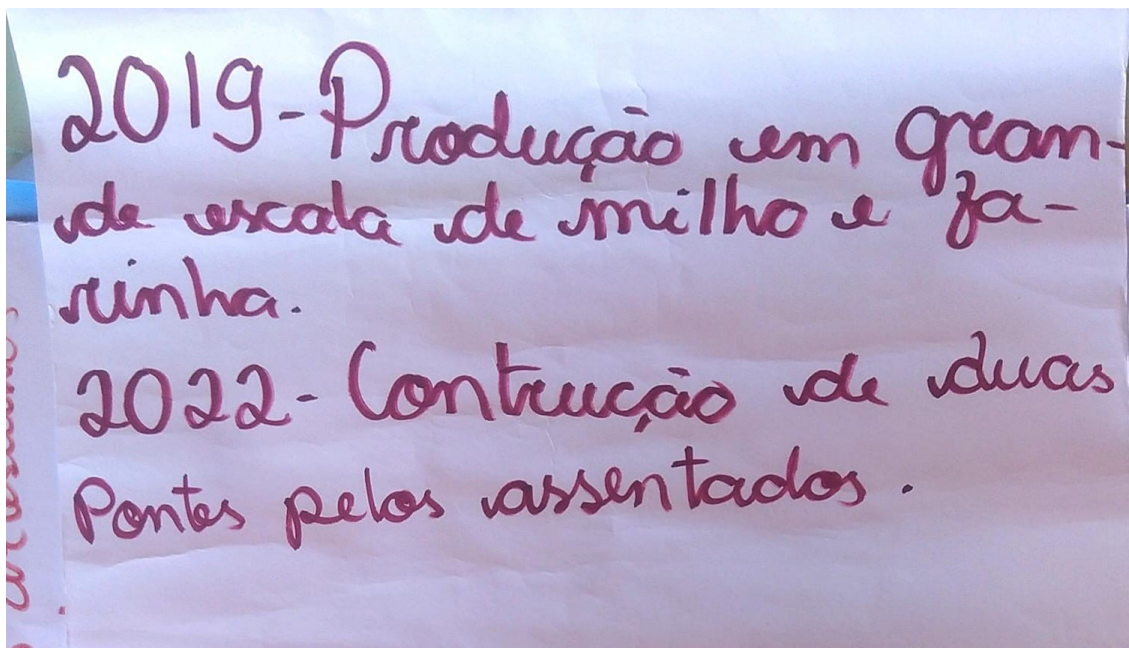 2019-Produção em gran-
de escala de milho e fa-
rinha.
2022-Contrução de duas
Pontes pelos assentados.